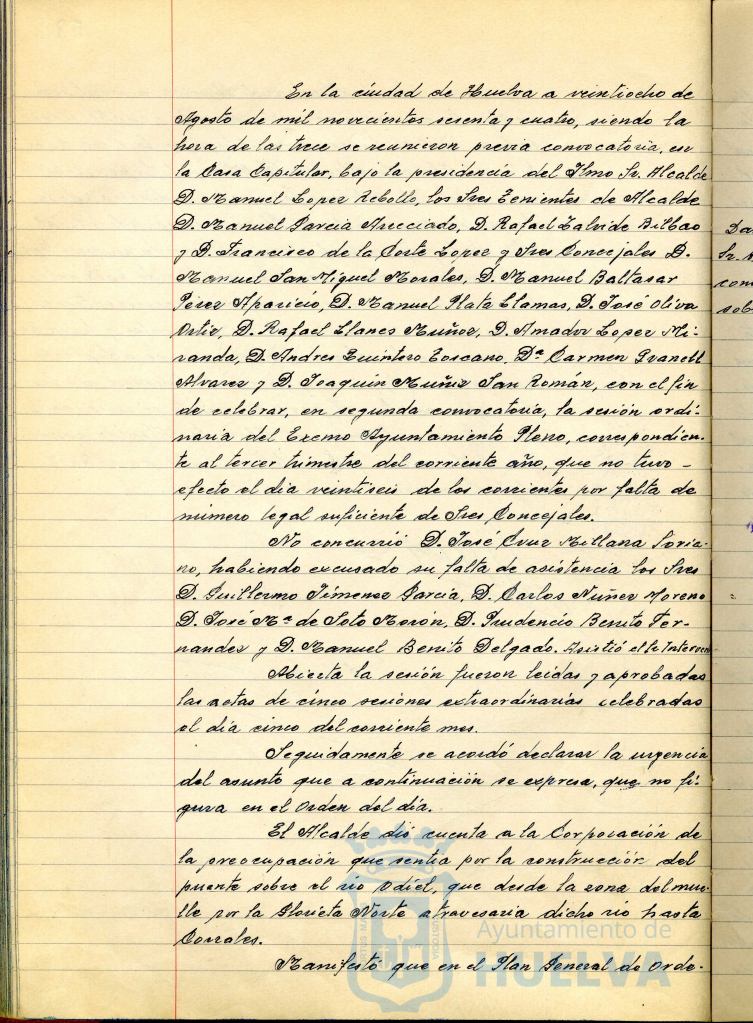 En la ciudad de Huelva a veintiocho de
Agosto de mil novecientos sesenta y cuatro, siendo la
hora de las trece se reunieron previa convocatoria, en
la Casa Capitular, bajo la presidencia del Ilmo Sr. Alcalde
D. Manuel Lopez Rebollo, los Sres Tenientes de Alcalde
D. Manuel Garcia Arecciado, D. Rafael Zalvide Bilbao
y D. Francisco de la Corte Lopez y Sres Concejales D.
Manuel San Miguel Morales, D. Manuel Baltasar
Pérez Aparicio, D. Manuel Plata Llamas, D. José Oliva
Ortiz, D. Rafael Llanes Muñoz, D. Amador Lopez Mi-
randa, D. Andres Quintero Toscano, Dª Carmen
Alvarez y D. Joaquin Muñiz San Román, con el fin
de celebrar, en segunda convocatoria, la sesión ordi-
naria del Excmo Ayuntamiento Pleno, correspondien-
te al tercer trimestre del corriente año, que no tuvo -
efecto el dia veintiseis de los corrientes por falta de
número legal suficiente de Sres Concejales.
No concurrió D. José Cruz Millana Soria-
no, habiendo excusado su falta de asistencia los Sres
D. Guillermo Jimenez Garcia, D. Carlos Nuñez Moreno
D. José Mª de Soto Morón, D. Prudencio Benito Fer-
nandez y D. Manuel Benito Delgado. Asistió el Sr Interven
Abierta la sesión fueron leidas y aprobadas
las actas de cinco sesiones extraordinarias celebradas
el día cinco del corriente mes.
Seguidamente se acordó declarar la urgencia
del asunto que a continuación se expresa, que no fi-
gura en el Orden del día.
El Alcalde dió cuenta a la Corporación de
la preocupación que sentia por la construcción del
puente sobre el rio Odiel, que desde la zona del mue-
lle por la Glorieta Norte atravesaria dicho rio hasta
Corrales.
Manifestó que en el Plan General de Orde-
Da
Sr.
con
sob
Ayuntamiento de
HUELVA